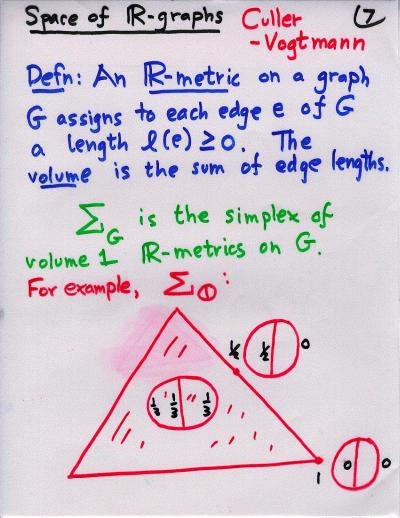 Space of ℝ-graphs Culler 7
-Vogtmann
Defn: An ℝ-metric on a graph
G assigns to each edge e of G
a length l(e) ≥ 0. The
volume is the sum of edge lengths.
Σ_G is the simplex of
volume 1 ℝ-metrics on G.
For example, Σ_⦶:
½ ½ 0
⅓ ⅓ ⅓
1 0 0